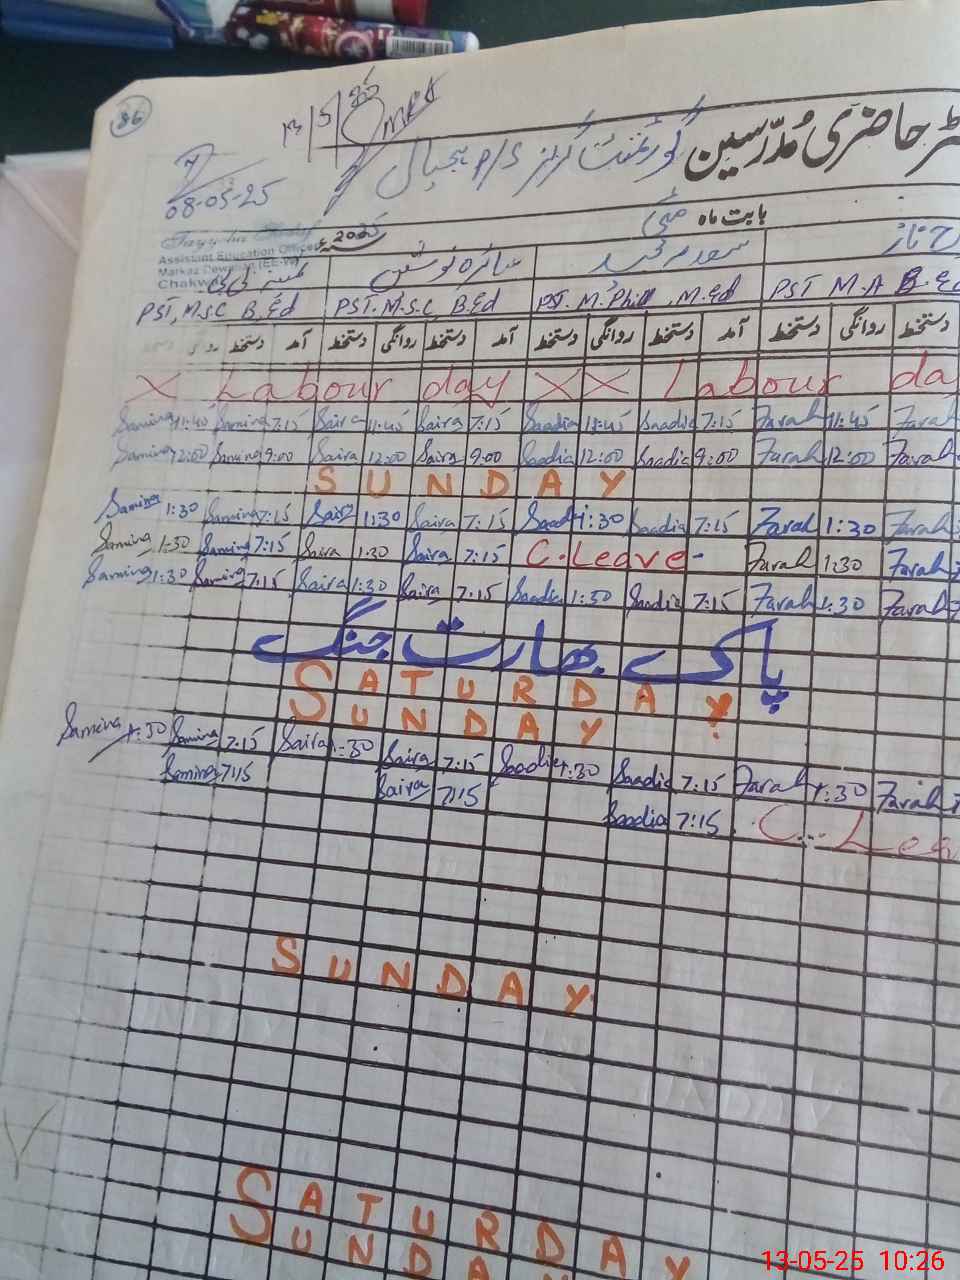 86
13/5/25
08-05-25
رجسٹر حاضری مدرسین گورنمنٹ گرلز P/S
بابت ماہ مئی 2025
Assistant Education Officer
Markaz
Chakwal
سعدیہ سائرہ نوشین ثمینہ بی بی
PST, M.SC B.Ed PST. M.S.C, B.Ed PST. M.Phill, M.Ed PST M.A B.Ed
دستخط روانگی دستخط آمد دستخط روانگی دستخط آمد دستخط روانگی دستخط آمد دستخط
X Labour day X X Labour da
Samina 11:45 Samina 7:15 Saira 11:45 Saira 7:15 Saadia 11:45 Saadia 7:15 Farah 11:45 Farah
Samina 12:00 Samina 9:00 Saira 12:00 Saira 9:00 Saadia 12:00 Saadia 9:00 Farah 12:00 Farah
SUNDAY
Samina 1:30 Samina 7:15 Saira 1:30 Saira 7:15 Saadia 1:30 Saadia 7:15 Farah 1:30 Farah
Samina 1:30 Samina 7:15 Saira 1:30 Saira 7:15 C.Leave - Farah 1:30 Farah
Samina 1:30 Samina 7:15 Saira 1:30 Saira 7:15 Saadia 1:30 Saadia 7:15 Farah 1:30 Farah
پاک بھارت جنگ
SATURDAY
SUNDAY
Samina 1:30 Samina 7:15 Saira 1:30 Saira 7:15 Saadia 1:30 Saadia 7:15 Farah 1:30 Farah
Samina 7:15 Saira 7:15 Saadia 7:15 C... Lea
SUNDAY
SATURDAY
SUNDAY
13-05-25 10:26